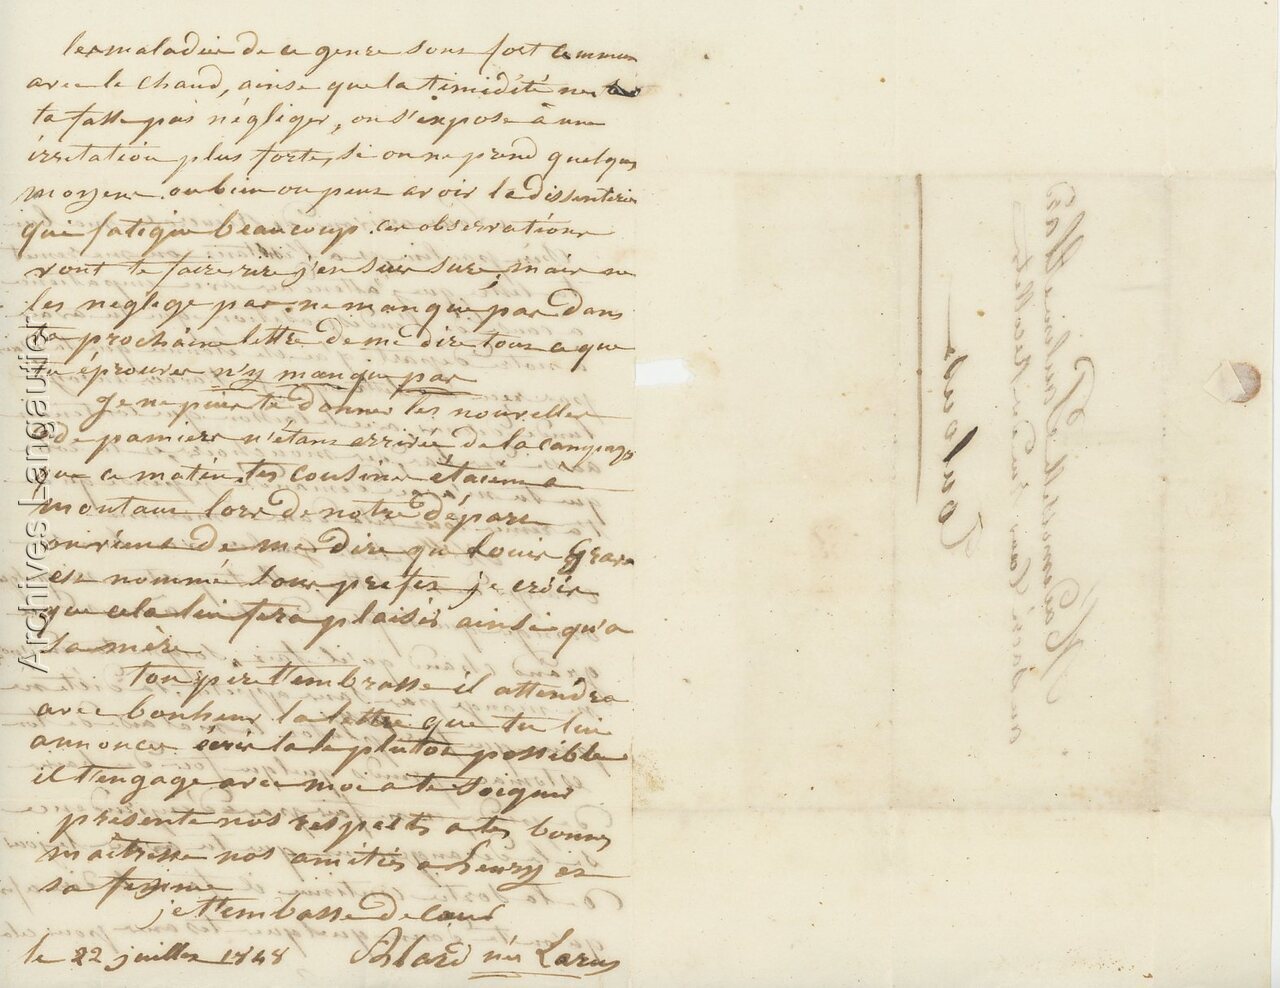 les maladies de ce genre sont fort commun
avec le chaud, ainsi que la timidité ne te
ta fasse pas négliger, on s'expose à une
irritation plus forte, si on ne prend quelques
moyens. ou bien on peut avoir la dissenterie
qui fatigue beaucoup. ces observations
vont te faire rire j'en suis sure, mais ne
les neglege pas. ne manque pas dans
ta prochaine lettre de me dire tout ce que
tu éprouves n'y manque pas
je ne puis te donner les nouvelles
de pamiers n'étant arrivée de la campagne
que ce matin. tes cousines étaient a
montaut lors de notre départ
on vient de me dire que Louis
est nommé sous prefet je crois
que cela lui fera plaisir ainsi qu'a
sa mère
ton père t'embrasse il attendra
avec bonheur la lettre que tu lui
annonces écris la le plutot possible
il t'engage avec moi a te soigner
présente nos respects a tes bonnes
maitresse nos amitiés a henry et
sa femme
je t'embasse de cœur
le 22 juillet 1848 Alard née Larue
Mademoiselle
Toulouse
Archives Langautier